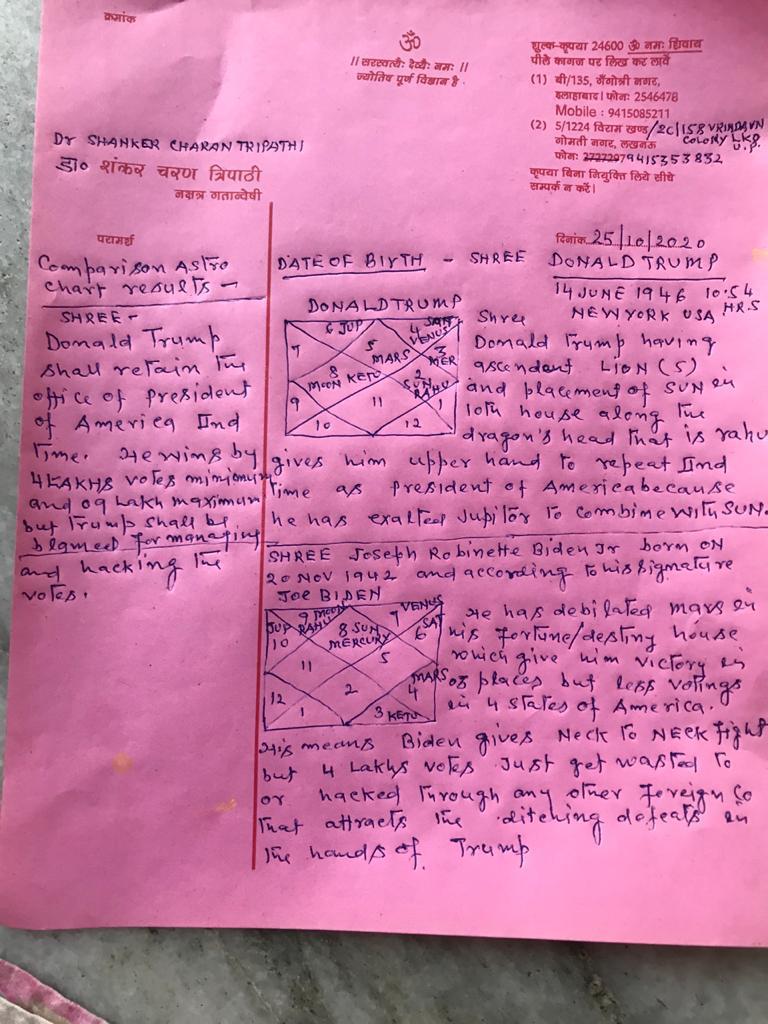 क्रमांक
ॐ
।। सरस्वत्यैः देव्यैः नमः ।।
ज्योतिष पूर्ण विज्ञान है .
शुल्क-कृपया 24600 ॐ नमः शिवाय
पीले कागज पर लिख कर लावें
(1) बी/135, गँगोत्री नगर,
इलाहाबाद। फोनः 2546478
Mobile : 9415085211
(2) 5/1224 विराम खण्ड/2C/158 VRINDAVN
COLONY LKO
U.P.
गोमती नगर, लखनऊ
फोनः 2727297 9415353832
कृपया बिना नियुक्ति लिये सीधे
सम्पर्क न करें।
Dr SHANKER CHARAN TRIPATHI
डा० शंकर चरण त्रिपाठी
नक्षत्र गतान्वेषी
परामर्श
दिनांक 25/10/2020
Comparison Astro
chart results -
SHREE -
Donald Trump
shall retain the
office of president
of America IInd
time. He wins by
4 LAKHS votes minimum
and 09 Lakh maximum
but Trump shall be
blamed for managing
and hacking the
votes.
DATE OF BIRTH - SHREE DONALD TRUMP
14 JUNE 1946 10:54 HRS
NEWYORK USA
DONALD TRUMP
6 JUP
4 SAT
VENUS
7
5
MARS
3
MER
8
MOON KETU
2
SUN
RAHU
9
11
1
10
12
Shree
Donald Trump having
ascendant LION (5)
and placement of SUN in
10th house along the
dragon's head that is rahu
gives him upper hand to repeat IInd
time as president of America because
he has exalted Jupitor to combine with SUN.
SHREE Joseph Robinette Biden Jr born ON
20 NOV 1942 and according to his signature
JOE BIDEN
9 MOON
RAHU
7 VENUS
JUP
10
8 SUN
MERCURY
SAT
6
11
5
12
2
MARS
4
1
3 KETU
He has debilated mars in
his fortune/destiny house
which give him victory in
03 places but less votings
in 4 states of America.
This means Biden gives NECK TO NECK Fight
but 4 Lakhs votes Just get wasted to
or hacked through any other foreign Co
that attracts the ditching defeats in
the hands of Trump